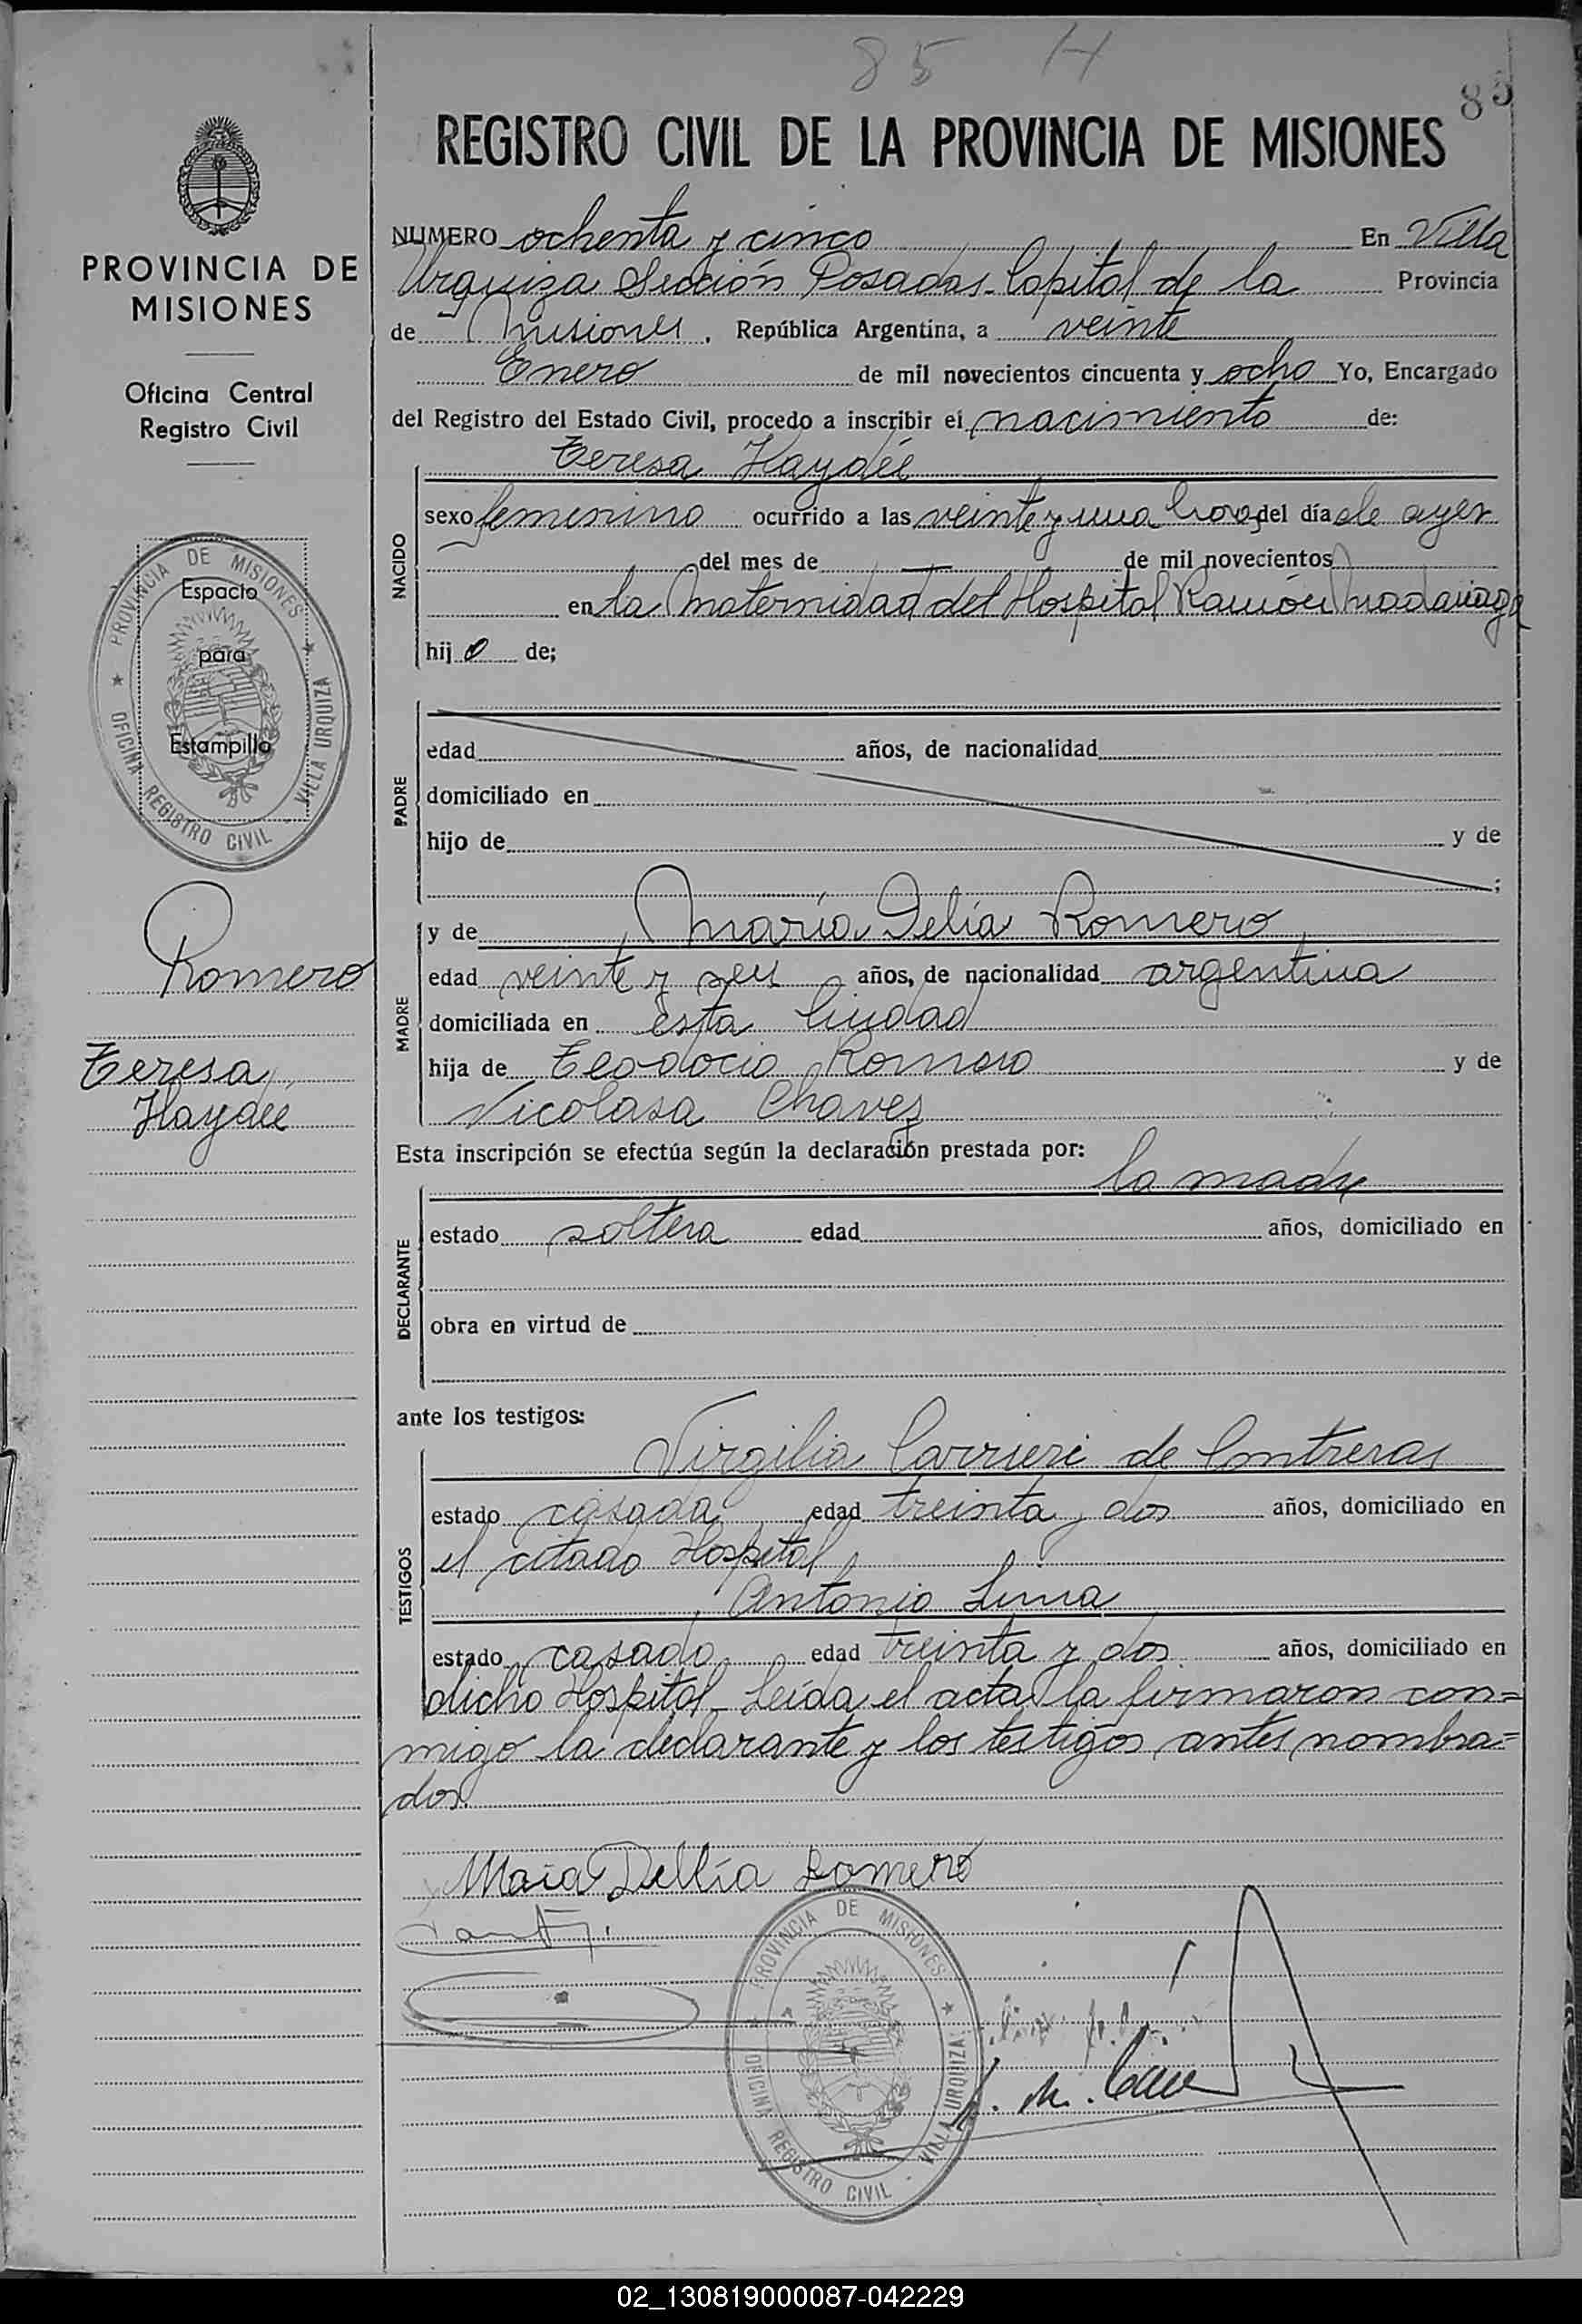 85 H
85
REGISTRO CIVIL DE LA PROVINCIA DE MISIONES
PROVINCIA DE
MISIONES
Oficina Central
Registro Civil
PROVINCIA DE MISIONES
OFICINA REGISTRO CIVIL - VILLA URQUIZA
Espacio
para
Estampilla
Romero
Teresa
Haydée
NUMERO ochenta y cinco En Villa
Urquiza Sección Posadas Capital de la Provincia
de Misiones, República Argentina, a veinte
Enero de mil novecientos cincuenta y ocho Yo, Encargado
del Registro del Estado Civil, procedo a inscribir el nacimiento de:
NACIDO
Teresa Haydée
sexo femenino ocurrido a las veinte y una horas del día de ayer
del mes de — de mil novecientos
en la Maternidad del Hospital Ramón Madariaga
hij a de;
PADRE
edad años, de nacionalidad
domiciliado en
hijo de y de
;
MADRE
y de María Delia Romero
edad veinte y seis años, de nacionalidad argentina
domiciliada en esta Ciudad
hija de Teodocio Romero y de
Nicolasa Chavez
Esta inscripción se efectúa según la declaración prestada por:
DECLARANTE
la madre
estado soltera edad años, domiciliado en
obra en virtud de
ante los testigos:
TESTIGOS
Virgilia Carrieri de Contreras
estado casada edad treinta y dos años, domiciliado en
el citado Hospital
Antonio Luna
estado casado edad treinta y dos años, domiciliado en
dicho Hospital - Leída el acta la firmaron con=
migo la declarante y los testigos antes nombra=
dos.
Maia Dellia Romero
PROVINCIA DE MISIONES
OFICINA REGISTRO CIVIL - VILLA URQUIZA
02_130819000087-042229